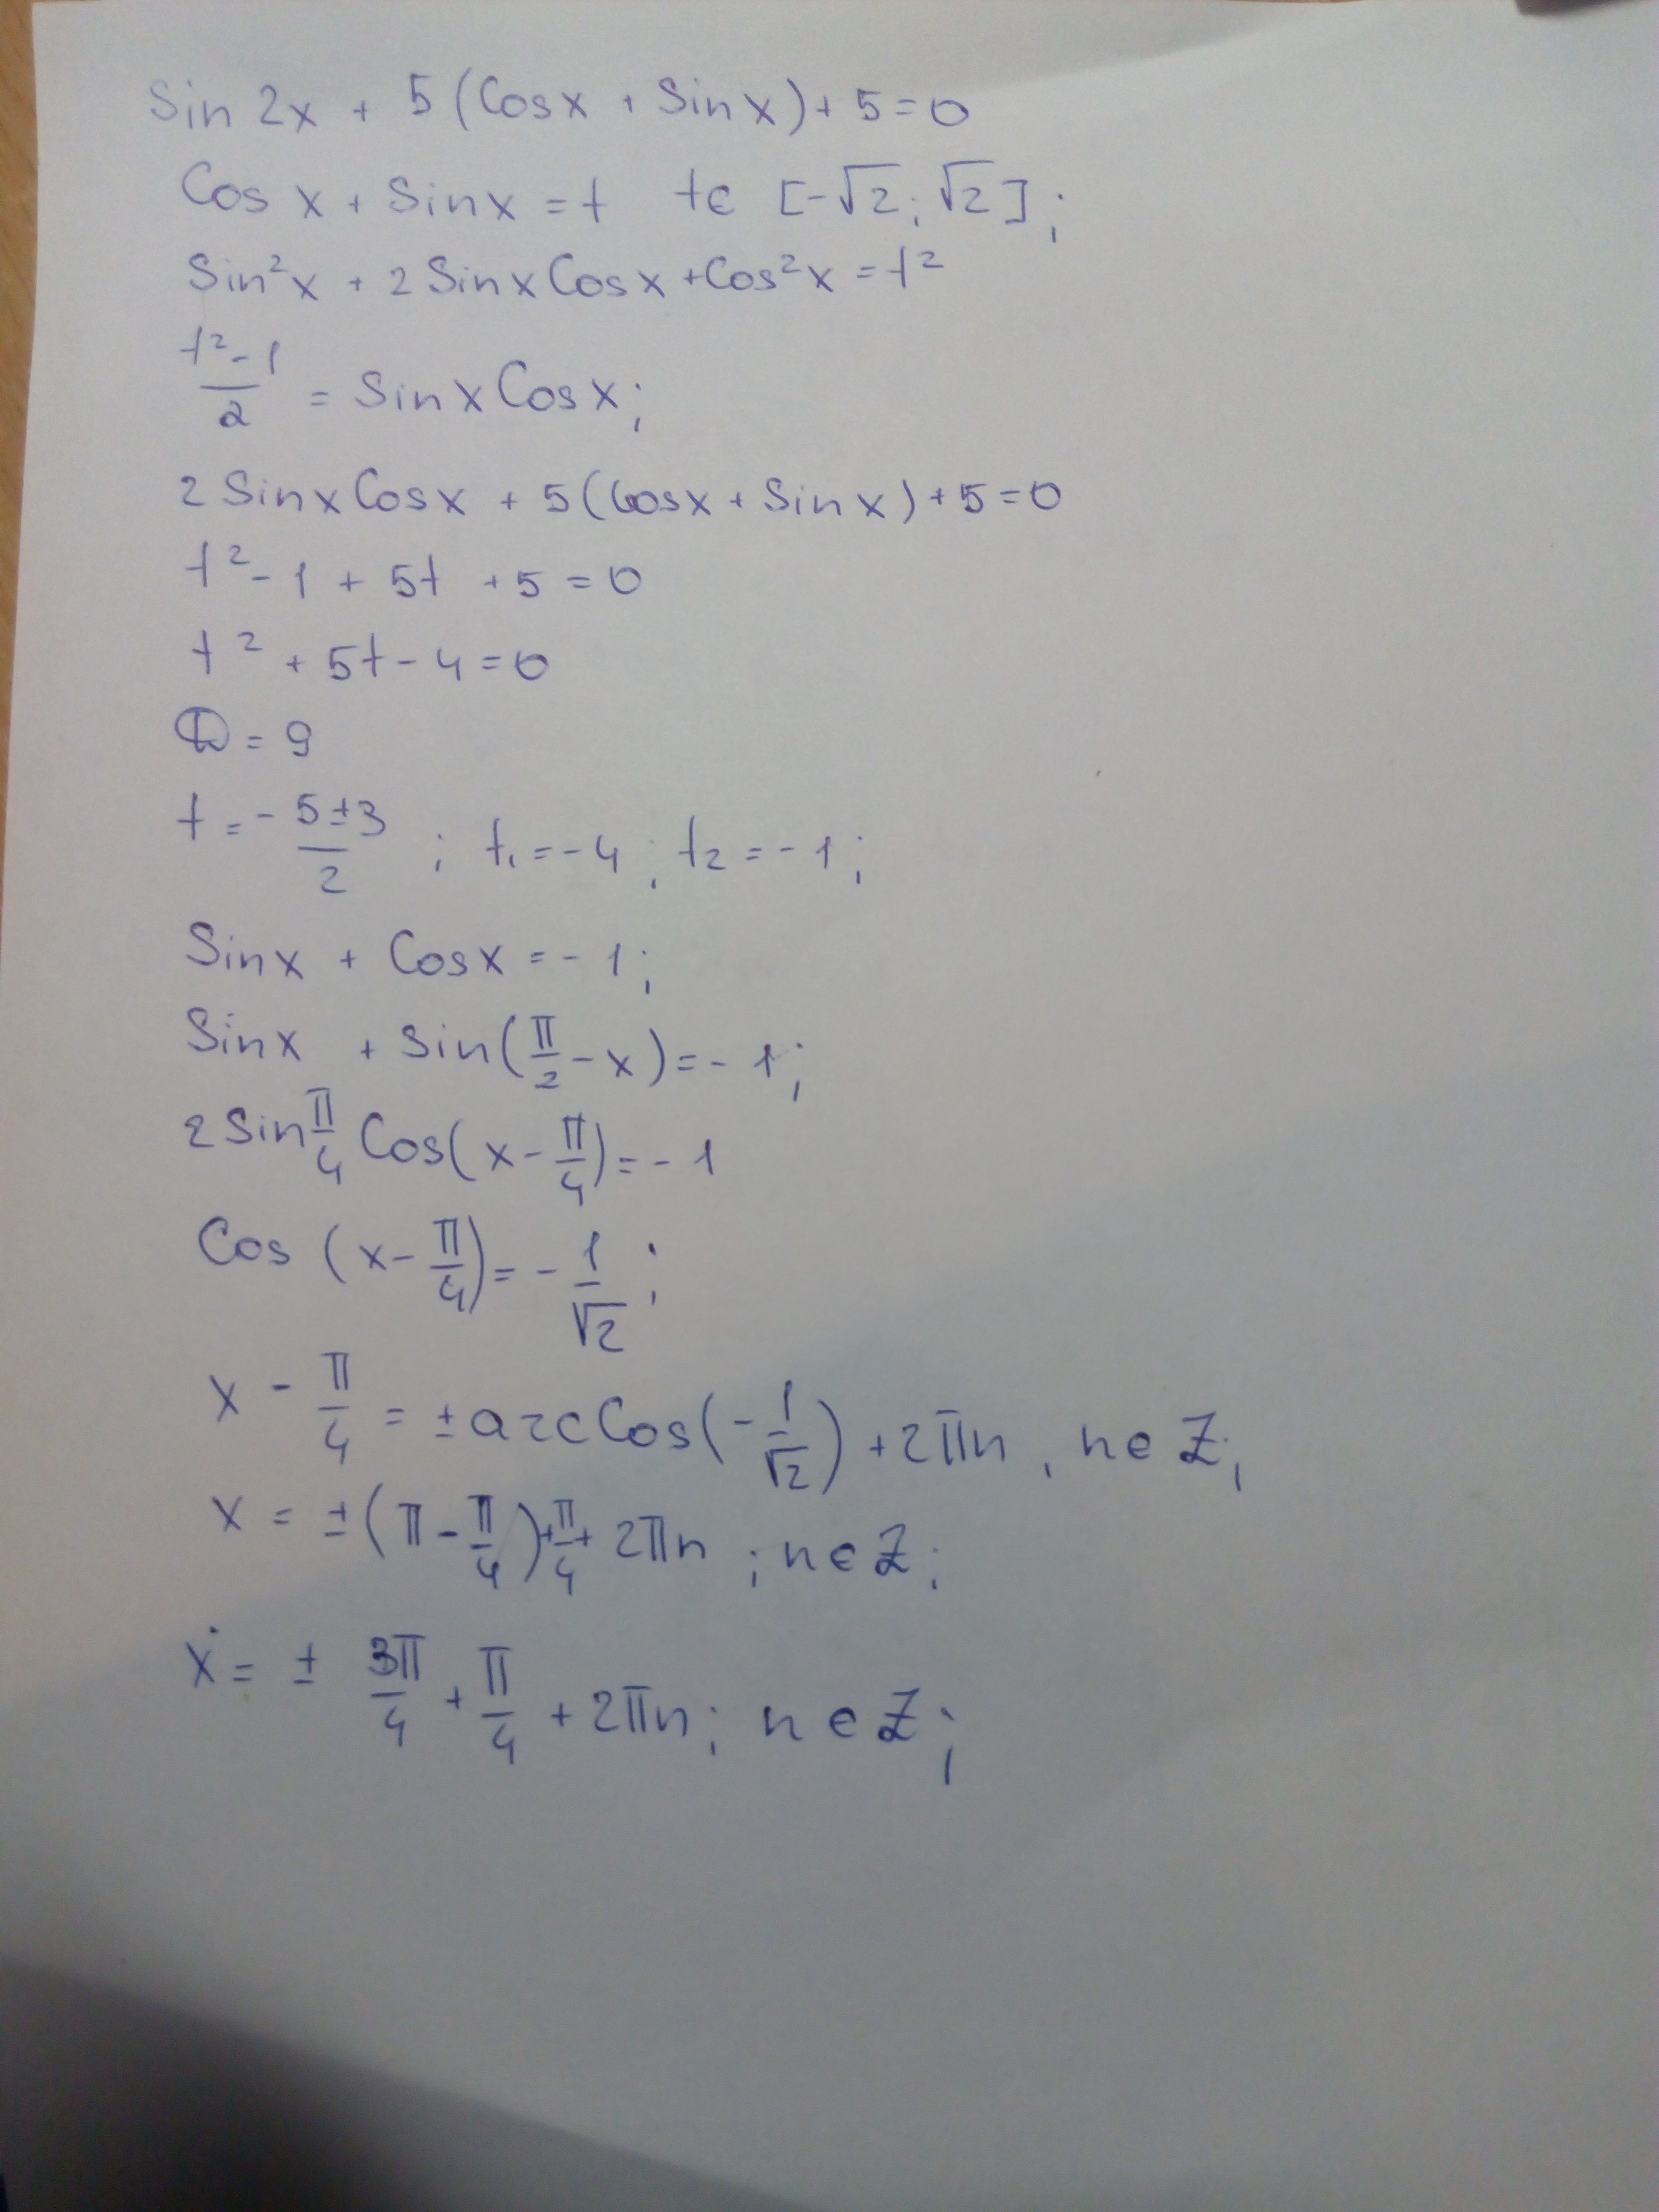 Sin 2x + 5 (Cosx + Sin x) + 5 = 0
Cos x + Sin x = t   t ∈ [-√2; √2];
Sin²x + 2 Sin x Cos x + Cos²x = t²
(t² - 1)/2 = Sin x Cos x;
2 Sin x Cos x + 5 (Cosx + Sin x) + 5 = 0
t² - 1 + 5t + 5 = 0
t² + 5t - 4 = 0
D = 9
t = - (5 ± 3)/2 ; t₁ = - 4 ; t₂ = - 1;
Sin x + Cos x = - 1;
Sin x + Sin(π/2 - x) = - 1;
2 Sin π/4 Cos(x - π/4) = - 1
Cos (x - π/4) = - 1/√2 ;
x - π/4 = ± arcCos(- 1/√2) + 2πn , n ∈ Z;
x = ± (π - π/4) + π/4 + 2πn ; n ∈ Z;
x = ± 3π/4 + π/4 + 2πn; n ∈ Z;